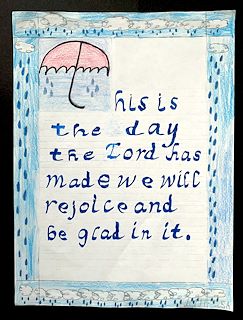 This is
the day
the Lord has
made we will
rejoice and
be glad in it.